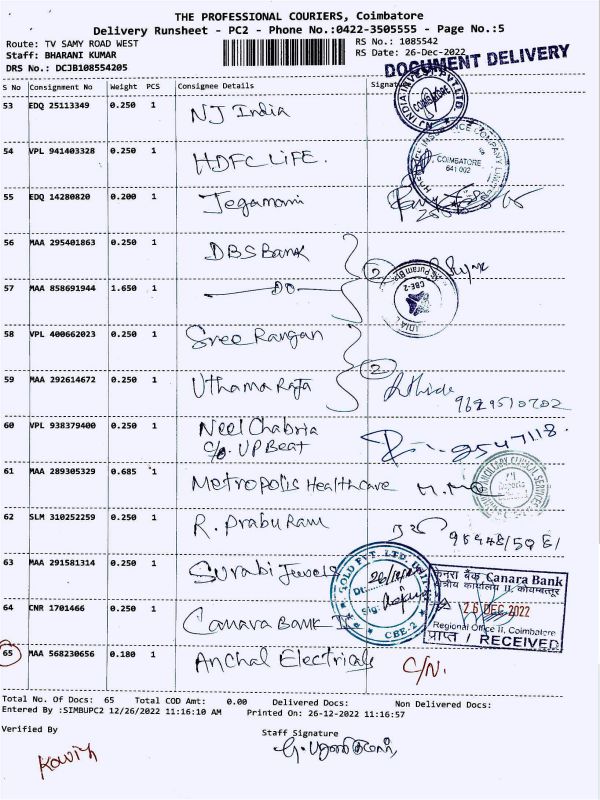 THE PROFESSIONAL COURIERS, Coimbatore
Delivery Runsheet - PC2 - Phone No.:0422-3505555 - Page No.:5
Route: TV SAMY ROAD WEST RS No.: 1085542
Staff: BHARANI KUMAR RS Date: 26-Dec-2022
DRS No.: DCJB108554205
DOCUMENT DELIVERY
S No Consignment No Weight PCS Consignee Details Signature
53 EDQ 25113349 0.250 1 NJ India
COIMBATORE
54 VPL 941403328 0.250 1 HDFC LIFE.
COIMBATORE
641 002
55 EDQ 14280820 0.200 1 Jegamani
56 MAA 295401863 0.250 1 DBS Bank
2
57 MAA 858691944 1.650 1 DO
CBE-2
INDIA
58 VPL 400662023 0.250 1 Sree Rangan
2
59 MAA 292614672 0.250 1 Uthama Raja
9629510702
60 VPL 938379400 0.250 1 Neel Chabria
C/o. UP Beat
61 MAA 289305329 0.685 1 Metropolis Healthcare
62 SLM 310252259 0.250 1 R. Prabu Ram
63 MAA 291581314 0.250 1 Surabi Jewels
GOLD PVT. LTD.
Dt:
Sig:
CBE-2
64 CNR 1701466 0.250 1 Canara Bank II
केनरा बैंक Canara Bank
क्षेत्रीय कार्यालय II, कोयम्बत्तूर
26 DEC 2022
Regional Office II, Coimbatore
प्राप्त / RECEIVED
65 MAA 568230656 0.180 1 Anchal Electricals C/N.
Total No. Of Docs: 65 Total COD Amt: 0.00 Delivered Docs: Non Delivered Docs:
Entered By :SIMBUPC2 12/26/2022 11:16:10 AM Printed On: 26-12-2022 11:16:57
Verified By Staff Signature